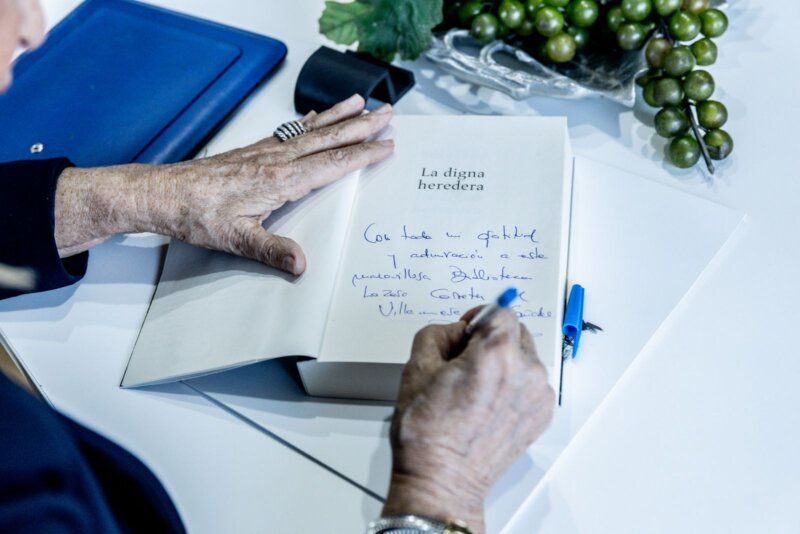 La digna
heredera
Con toda mi gratitud
y admiración a esta
maravillosa Biblioteca
Lazaro Carreter
Villanueva